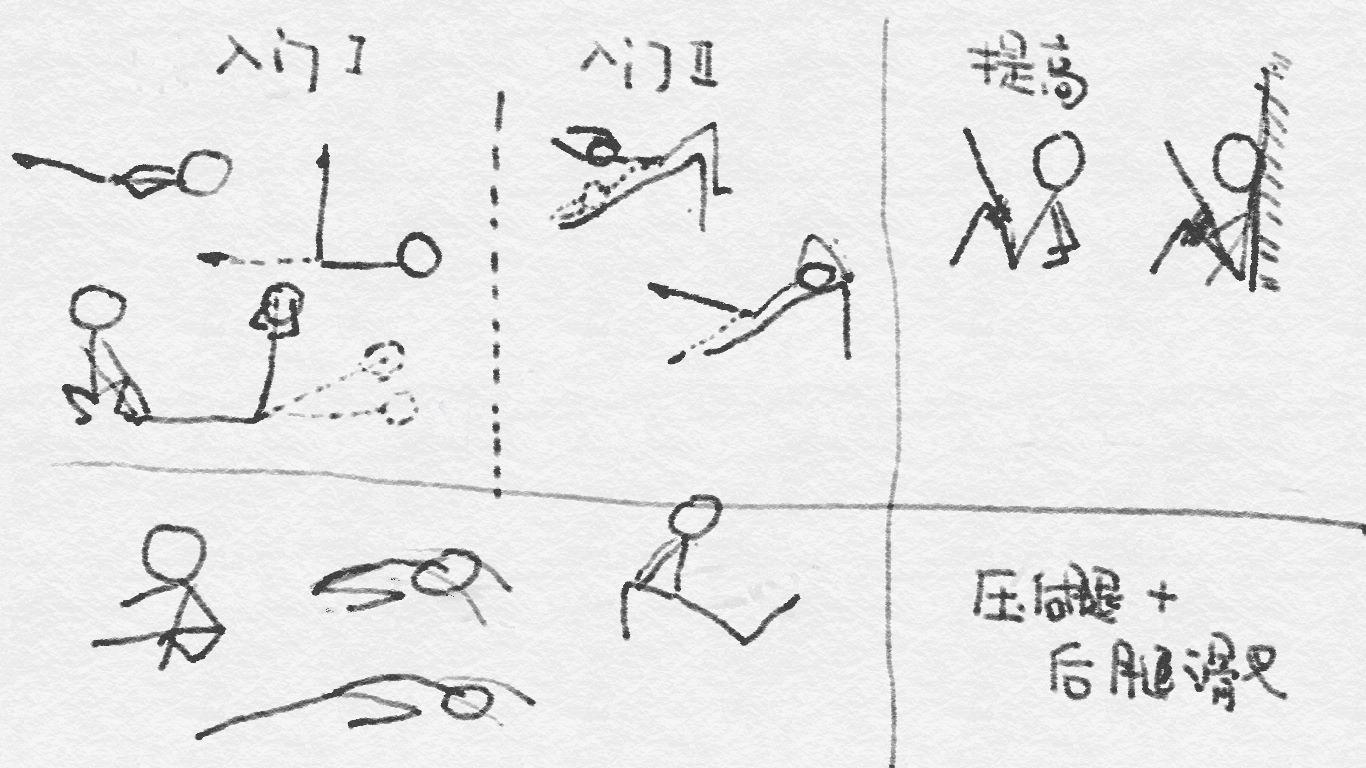 入门 I
入门 II
提高
压前腿 +
后腿滑叉